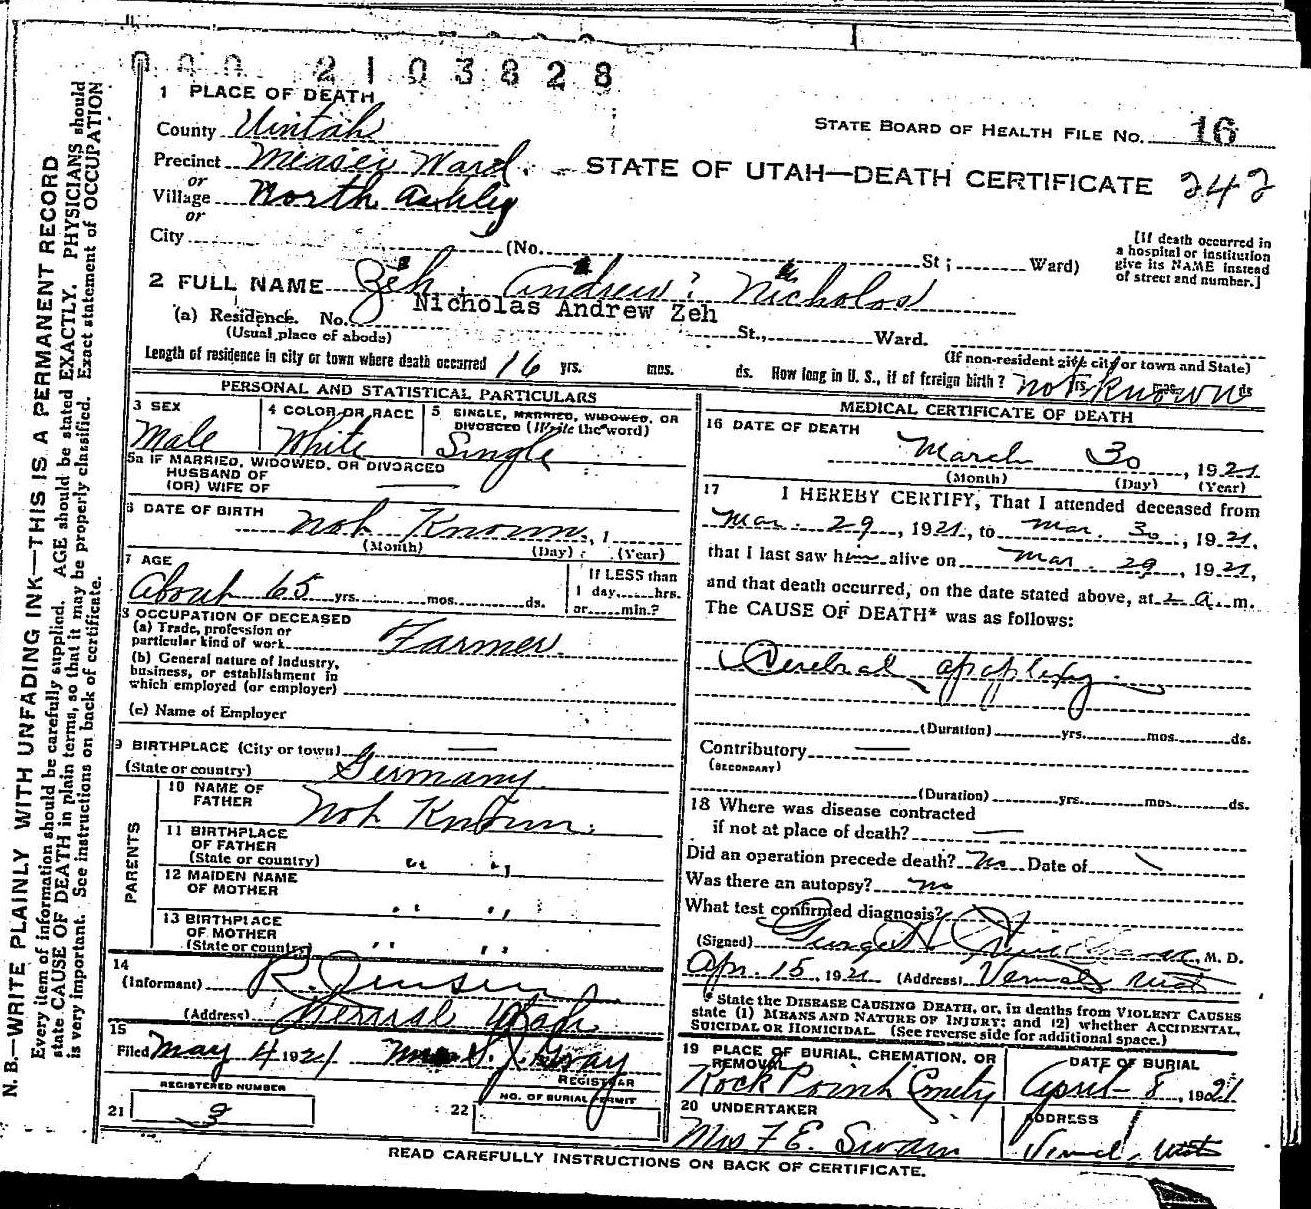 000 2103828
1 PLACE OF DEATH
STATE BOARD OF HEALTH FILE NO. 16
County Uintah
Precinct Measer Ward.
or
STATE OF UTAH—DEATH CERTIFICATE 242
Village North Ashley
or
City (No. St; Ward)
[If death occurred in
a hospital or institution
give its NAME instead
of street and number.]
2 FULL NAME Zeh, Andrew Nicholas
Nicholas Andrew Zeh
(a) Residence. No. St., Ward.
(Usual place of abode)
(If non-resident give city or town and State)
Length of residence in city or town where death occurred 16 yrs. mos. ds. How long in U. S., if of foreign birth? not known yrs. mos. ds
PERSONAL AND STATISTICAL PARTICULARS
3 SEX
Male
4 COLOR OR RACE
White
5 SINGLE, MARRIED, WIDOWED, OR
DIVORCED (Write the word)
Single
5a IF MARRIED, WIDOWED, OR DIVORCED
HUSBAND OF
(OR) WIFE OF
6 DATE OF BIRTH Not Known, 1
(Month) (Day) (Year)
7 AGE
About 65 yrs. mos. ds.
If LESS than
1 day, hrs.
or min.?
8 OCCUPATION OF DECEASED
(a) Trade, profession or
particular kind of work Farmer.
(b) General nature of Industry,
business, or establishment in
which employed (or employer)
(c) Name of Employer
9 BIRTHPLACE (City or town)
(State or country) Germany.
PARENTS
10 NAME OF
FATHER Not Known.
11 BIRTHPLACE
OF FATHER
(State or country) " "
12 MAIDEN NAME
OF MOTHER " "
13 BIRTHPLACE
OF MOTHER
(State or country) " "
14
(Informant) R. Jensen
(Address) Vernal Utah
15
Filed May 4 1921 Mrs S. J. Gray
REGISTRAR
REGISTERED NUMBER
21 3
NO. OF BURIAL PERMIT
22
MEDICAL CERTIFICATE OF DEATH
16 DATE OF DEATH
March 30, 1921
(Month) (Day) (Year)
17 I HEREBY CERTIFY, That I attended deceased from
Mar. 29, 1921, to Mar. 30, 1921,
that I last saw him alive on Mar. 29, 1921,
and that death occurred, on the date stated above, at 2 a. m.
The CAUSE OF DEATH* was as follows:
Cerebral apoplexy
(Duration) yrs. mos. ds.
Contributory
(SECONDARY)
(Duration) yrs. mos. ds.
18 Where was disease contracted
if not at place of death?
Did an operation precede death? no Date of
Was there an autopsy? no
What test confirmed diagnosis?
(Signed) George H. , M. D.
Apr. 15, 1921 (Address) Vernal Utah
* State the DISEASE CAUSING DEATH, or, in deaths from VIOLENT CAUSES
state (1) MEANS AND NATURE OF INJURY; and (2) whether ACCIDENTAL,
SUICIDAL OR HOMICIDAL. (See reverse side for additional space.)
19 PLACE OF BURIAL, CREMATION, OR
REMOVAL
Rock Point Cmety
DATE OF BURIAL
April 8, 1921
20 UNDERTAKER
Mrs F E. Swain
ADDRESS
Vernal, Utah
READ CAREFULLY INSTRUCTIONS ON BACK OF CERTIFICATE.
N. B.—WRITE PLAINLY WITH UNFADING INK—THIS IS A PERMANENT RECORD
Every item of information should be carefully supplied. AGE should be stated EXACTLY. PHYSICIANS should
state CAUSE OF DEATH in plain terms, so that it may be properly classified. Exact statement of OCCUPATION
is very important. See instructions on back of certificate.